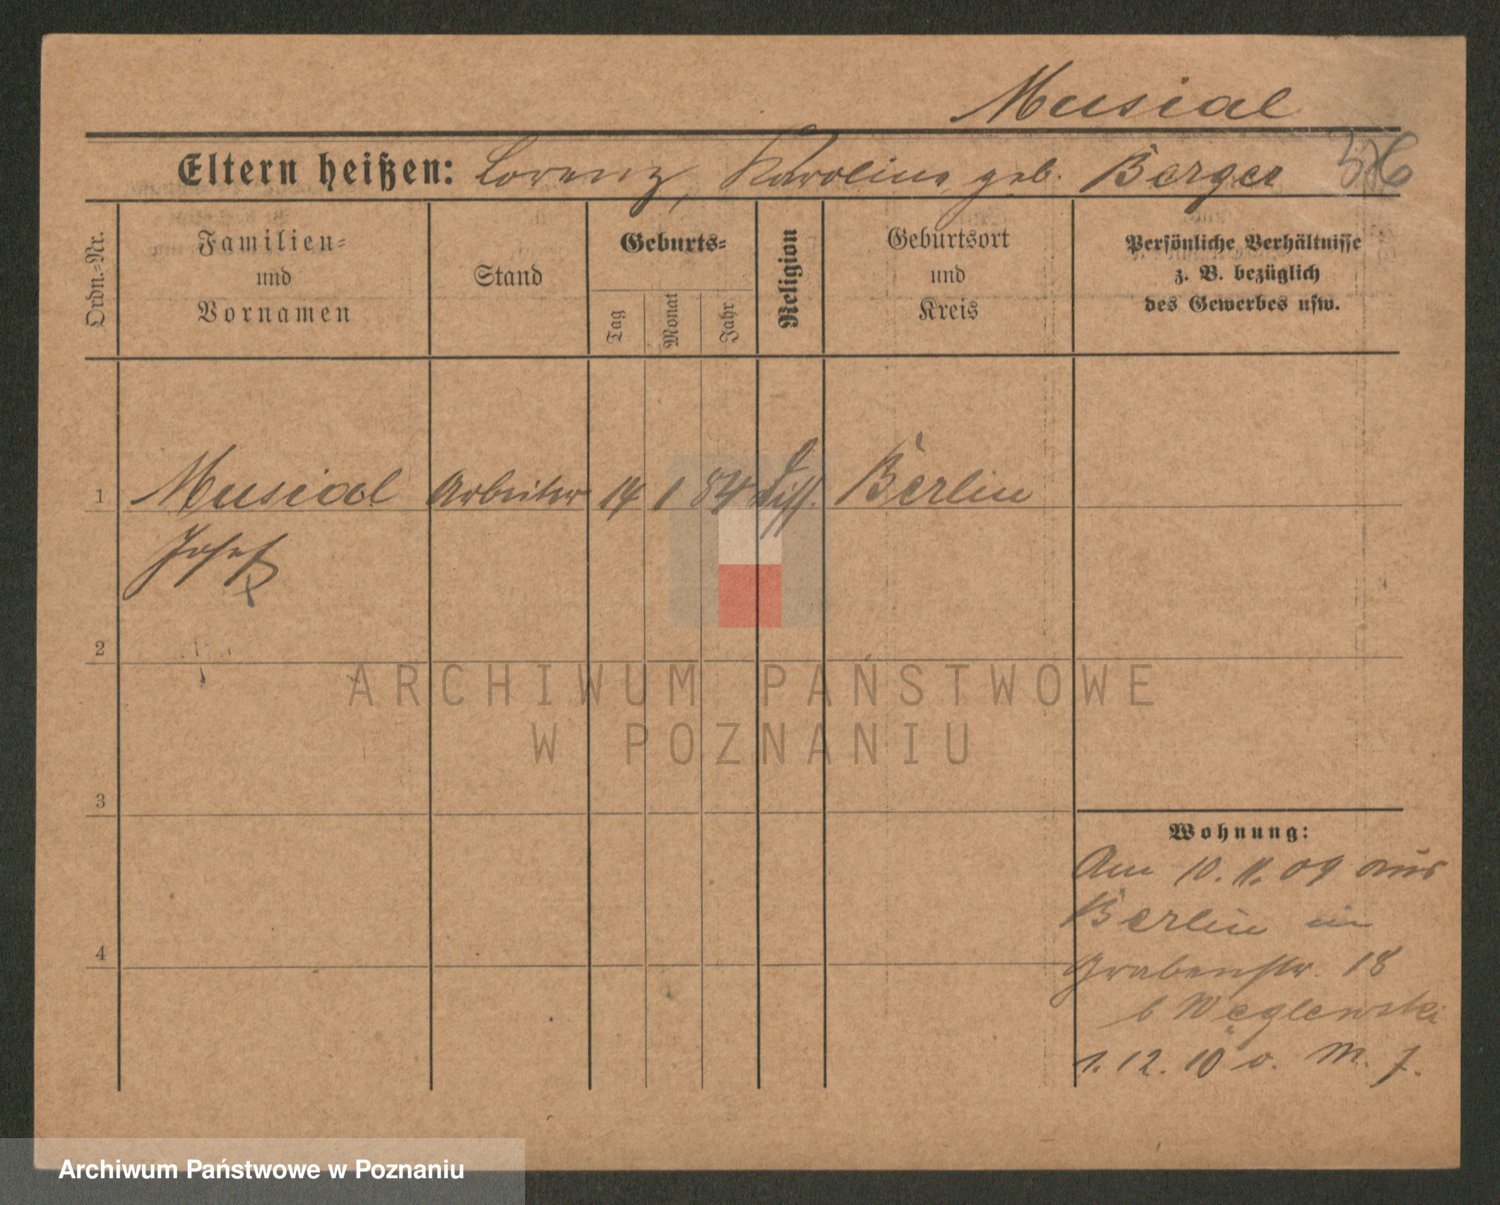 Musial
Eltern heißen: Lorenz, Karoline geb. Berger 376
Ordn.-Nr.
Familien-
und
Vornamen
Stand
Geburts-
Tag
Monat
Jahr
Religion
Geburtsort
und
Kreis
Persönliche Verhältnisse
z. B. bezüglich
des Gewerbes usw.
1 Musial Arbeiter 14 1 84 diss. Berlin
Josef
2
3
4
Wohnung:
Am 10. 11. 09 aus
Berlin in
Grabenstr. 18
b Weglewski
1. 12. 10 o. M. f.
ARCHIWUM PAŃSTWOWE
W POZNANIU
Archiwum Państwowe w Poznaniu